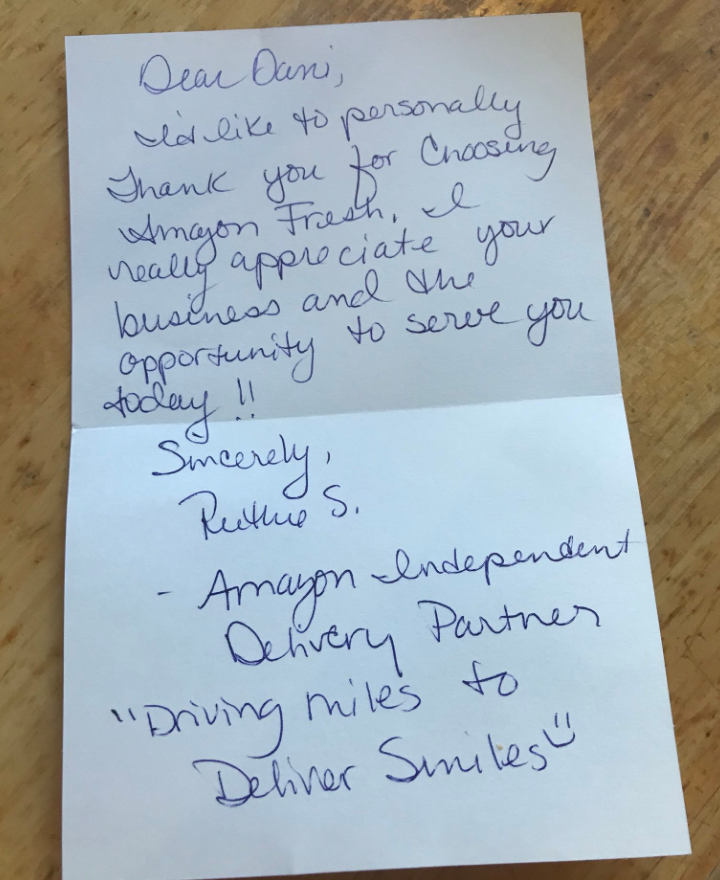 Dear Dani,
I'd like to personally
Thank you for Choosing
Amazon Fresh. I
really appreciate your
business and the
opportunity to serve you
today!!
Sincerely,
Ruthie S.
- Amazon Independent
Delivery Partner
"Driving miles to
Deliver Smiles" :)